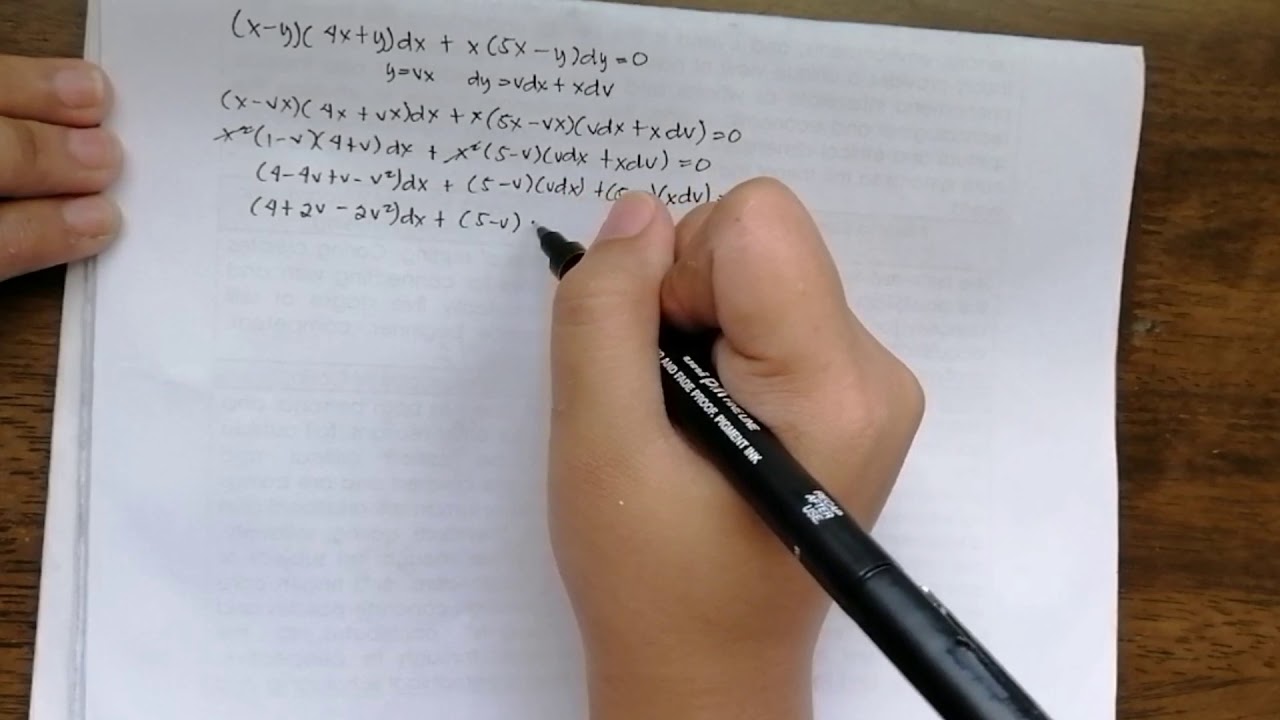 (x-y)(4x+y)dx + x(5x-y)dy=0
y=vx dy=vdx+xdv
(x-vx)(4x+vx)dx + x(5x-vx)(vdx+xdv)=0
x²(1-v)(4+v)dx + x²(5-v)(vdx+xdv)=0
(4-4v+v-v²)dx + (5-v)(vdx)+(5 )(xdv)
(4+2v-2v²)dx + (5-v)
uni pin FINE LINE
AND FADE PROOF, PIGMENT INK
RECAP AFTER USE